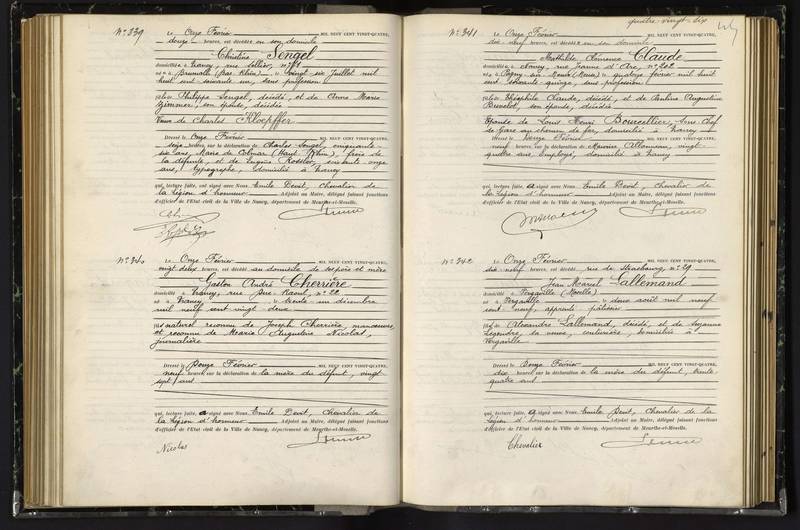 N° 339
Le Onze Février MIL NEUF CENT VINGT-QUATRE,
douze heures, est décédée en son domicile
Christine Sengel
domiciliée à Nancy, rue
née à Brumath (Bas-Rhin) le vingt six Juillet mil
huit cent soixante un, sans profession
fille de Philippe Sengel, décédé, et de Anne Marie
Zimmer, son épouse, décédée
Veuve de Charles Kloepffer
Dressé le Onze Février MIL NEUF CENT VINGT-QUATRE,
seize heures, sur la déclaration de Charles Sengel, cinquante-
six ans, Maire de Colmar (Haut-Rhin), frère de
la défunte, et de Eugène Rossler, soixante onze
ans, typographe, domicilié à Nancy
qui, lecture faite, ont signé avec Nous Emile Devit, Chevalier de
la Légion d'honneur Adjoint au Maire, délégué faisant fonctions
d'officier de l'Etat civil de la Ville de Nancy, département de Meurthe-et-Moselle.
N° 340
Le Onze Février MIL NEUF CENT VINGT-QUATRE,
vingt deux heures, est décédé au domicile de ses père et mère
Gaston André Cherrière
domicilié à Nancy, rue Pre-Raoul, n° 22
né à Nancy le trente un décembre
mil neuf cent vingt deux
fils naturel reconnu de Joseph Cherrière, manoeuvre,
et reconnu de Marie Augustine Nicolas,
journalière
Dressé le Douze Février MIL NEUF CENT VINGT-QUATRE,
neuf heures, sur la déclaration de la mère du défunt, vingt
sept ans
qui, lecture faite, a signé avec Nous Emile Devit, Chevalier de
la Légion d'honneur Adjoint au Maire, délégué faisant fonctions
d'officier de l'Etat civil de la Ville de Nancy, département de Meurthe-et-Moselle.
Nicolas
quatre-vingt-six
N° 341
Le Onze Février MIL NEUF CENT VINGT-QUATRE,
dix neuf heures, est décédée en son domicile
Mathilde Clémence Claude
domiciliée à Nancy, rue Jeanne d'Arc, n° 202
née à Pagny-sur-Meuse (Meuse) le quatorze février mil huit
cent soixante-quinze, sans profession
fille de Théophile Claude, décédé, et de Pauline Augustine
son épouse, décédée
Epouse de Louis Henri Bourcellier, Sous-Chef
de Gare au chemin de fer, domicilié à Nancy
Dressé le Douze Février MIL NEUF CENT VINGT-QUATRE,
neuf heures, sur la déclaration de Maurice vingt-
quatre ans, employé, domicilié à Nancy
qui, lecture faite, a signé avec Nous Emile Devit, Chevalier de
la Légion d'honneur Adjoint au Maire, délégué faisant fonctions
d'officier de l'Etat civil de la Ville de Nancy, département de Meurthe-et-Moselle.
N° 342
Le Onze Février MIL NEUF CENT VINGT-QUATRE,
dix-neuf heures, est décédé rue de Strasbourg, n° 29
Jean Marcel Lallemand
domicilié à Vergaville (Moselle)
né à Vergaville le deux août mil neuf
cent neuf, apprenti pâtissier
fils de Alexandre Lallemand, décédé, et de Suzanne
Legendre, sa veuve, couturière, domiciliée à
Vergaville
Dressé le Douze Février MIL NEUF CENT VINGT-QUATRE,
dix heures, sur la déclaration de la mère du défunt, trente
quatre ans
qui, lecture faite, a signé avec Nous Emile Devit, Chevalier de la
Légion d'honneur Adjoint au Maire, délégué faisant fonctions
d'officier de l'Etat civil de la Ville de Nancy, département de Meurthe-et-Moselle.
Chevalier